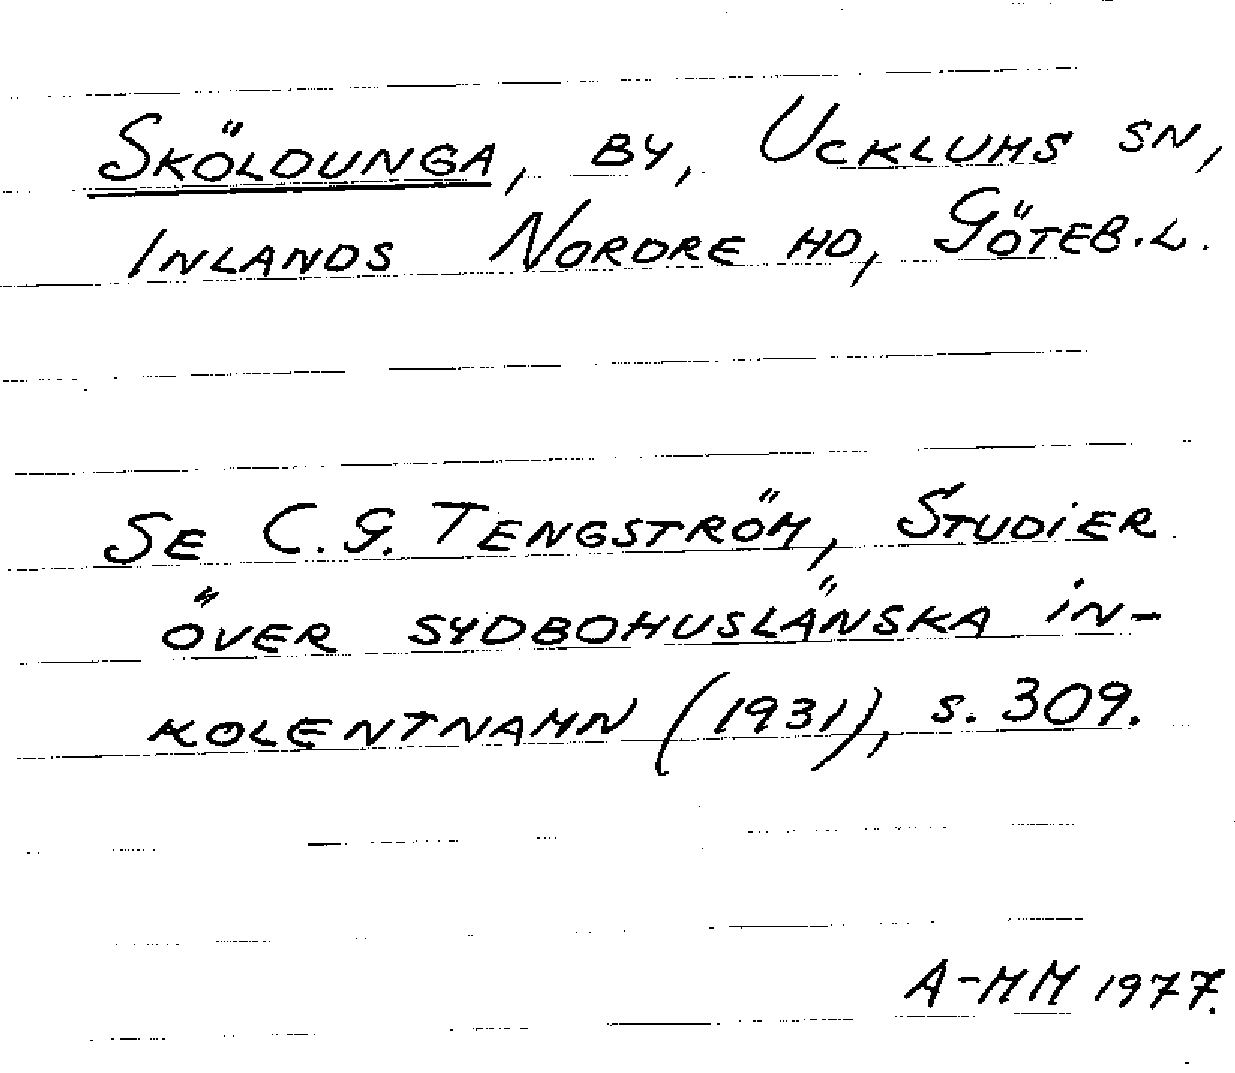 Sköldunga, by, Ucklums sn,
Inlands Nordre hd, Göteb.l.
Se C.G. Tengström, Studier
över sydbohuslänska in-
kolentnamn (1931), s. 309.
A-MM 1977.